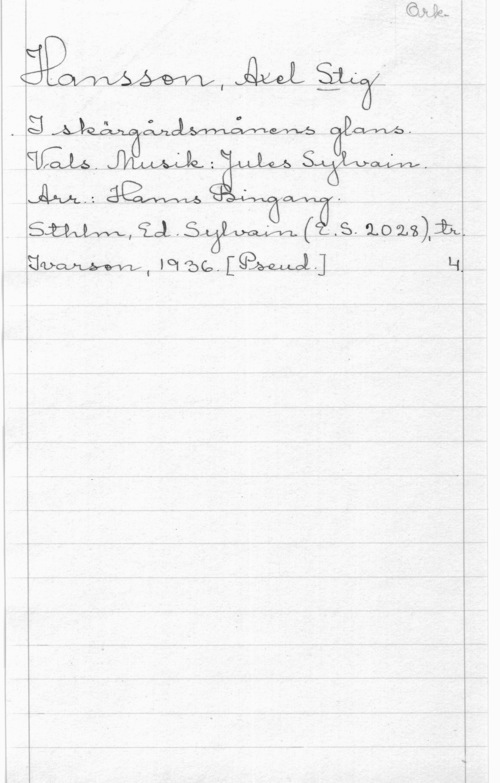 Ork.
Hansson, Axel Stig
I skärgårdsmånens glans.
Vals. Musik: Jules Sylvain.
Arr.: Hanns Bingang.
Sthlm, Ed. Sylvain (E.S. 2028), tr.
Ivarson, 1936. [Pseud.] 4